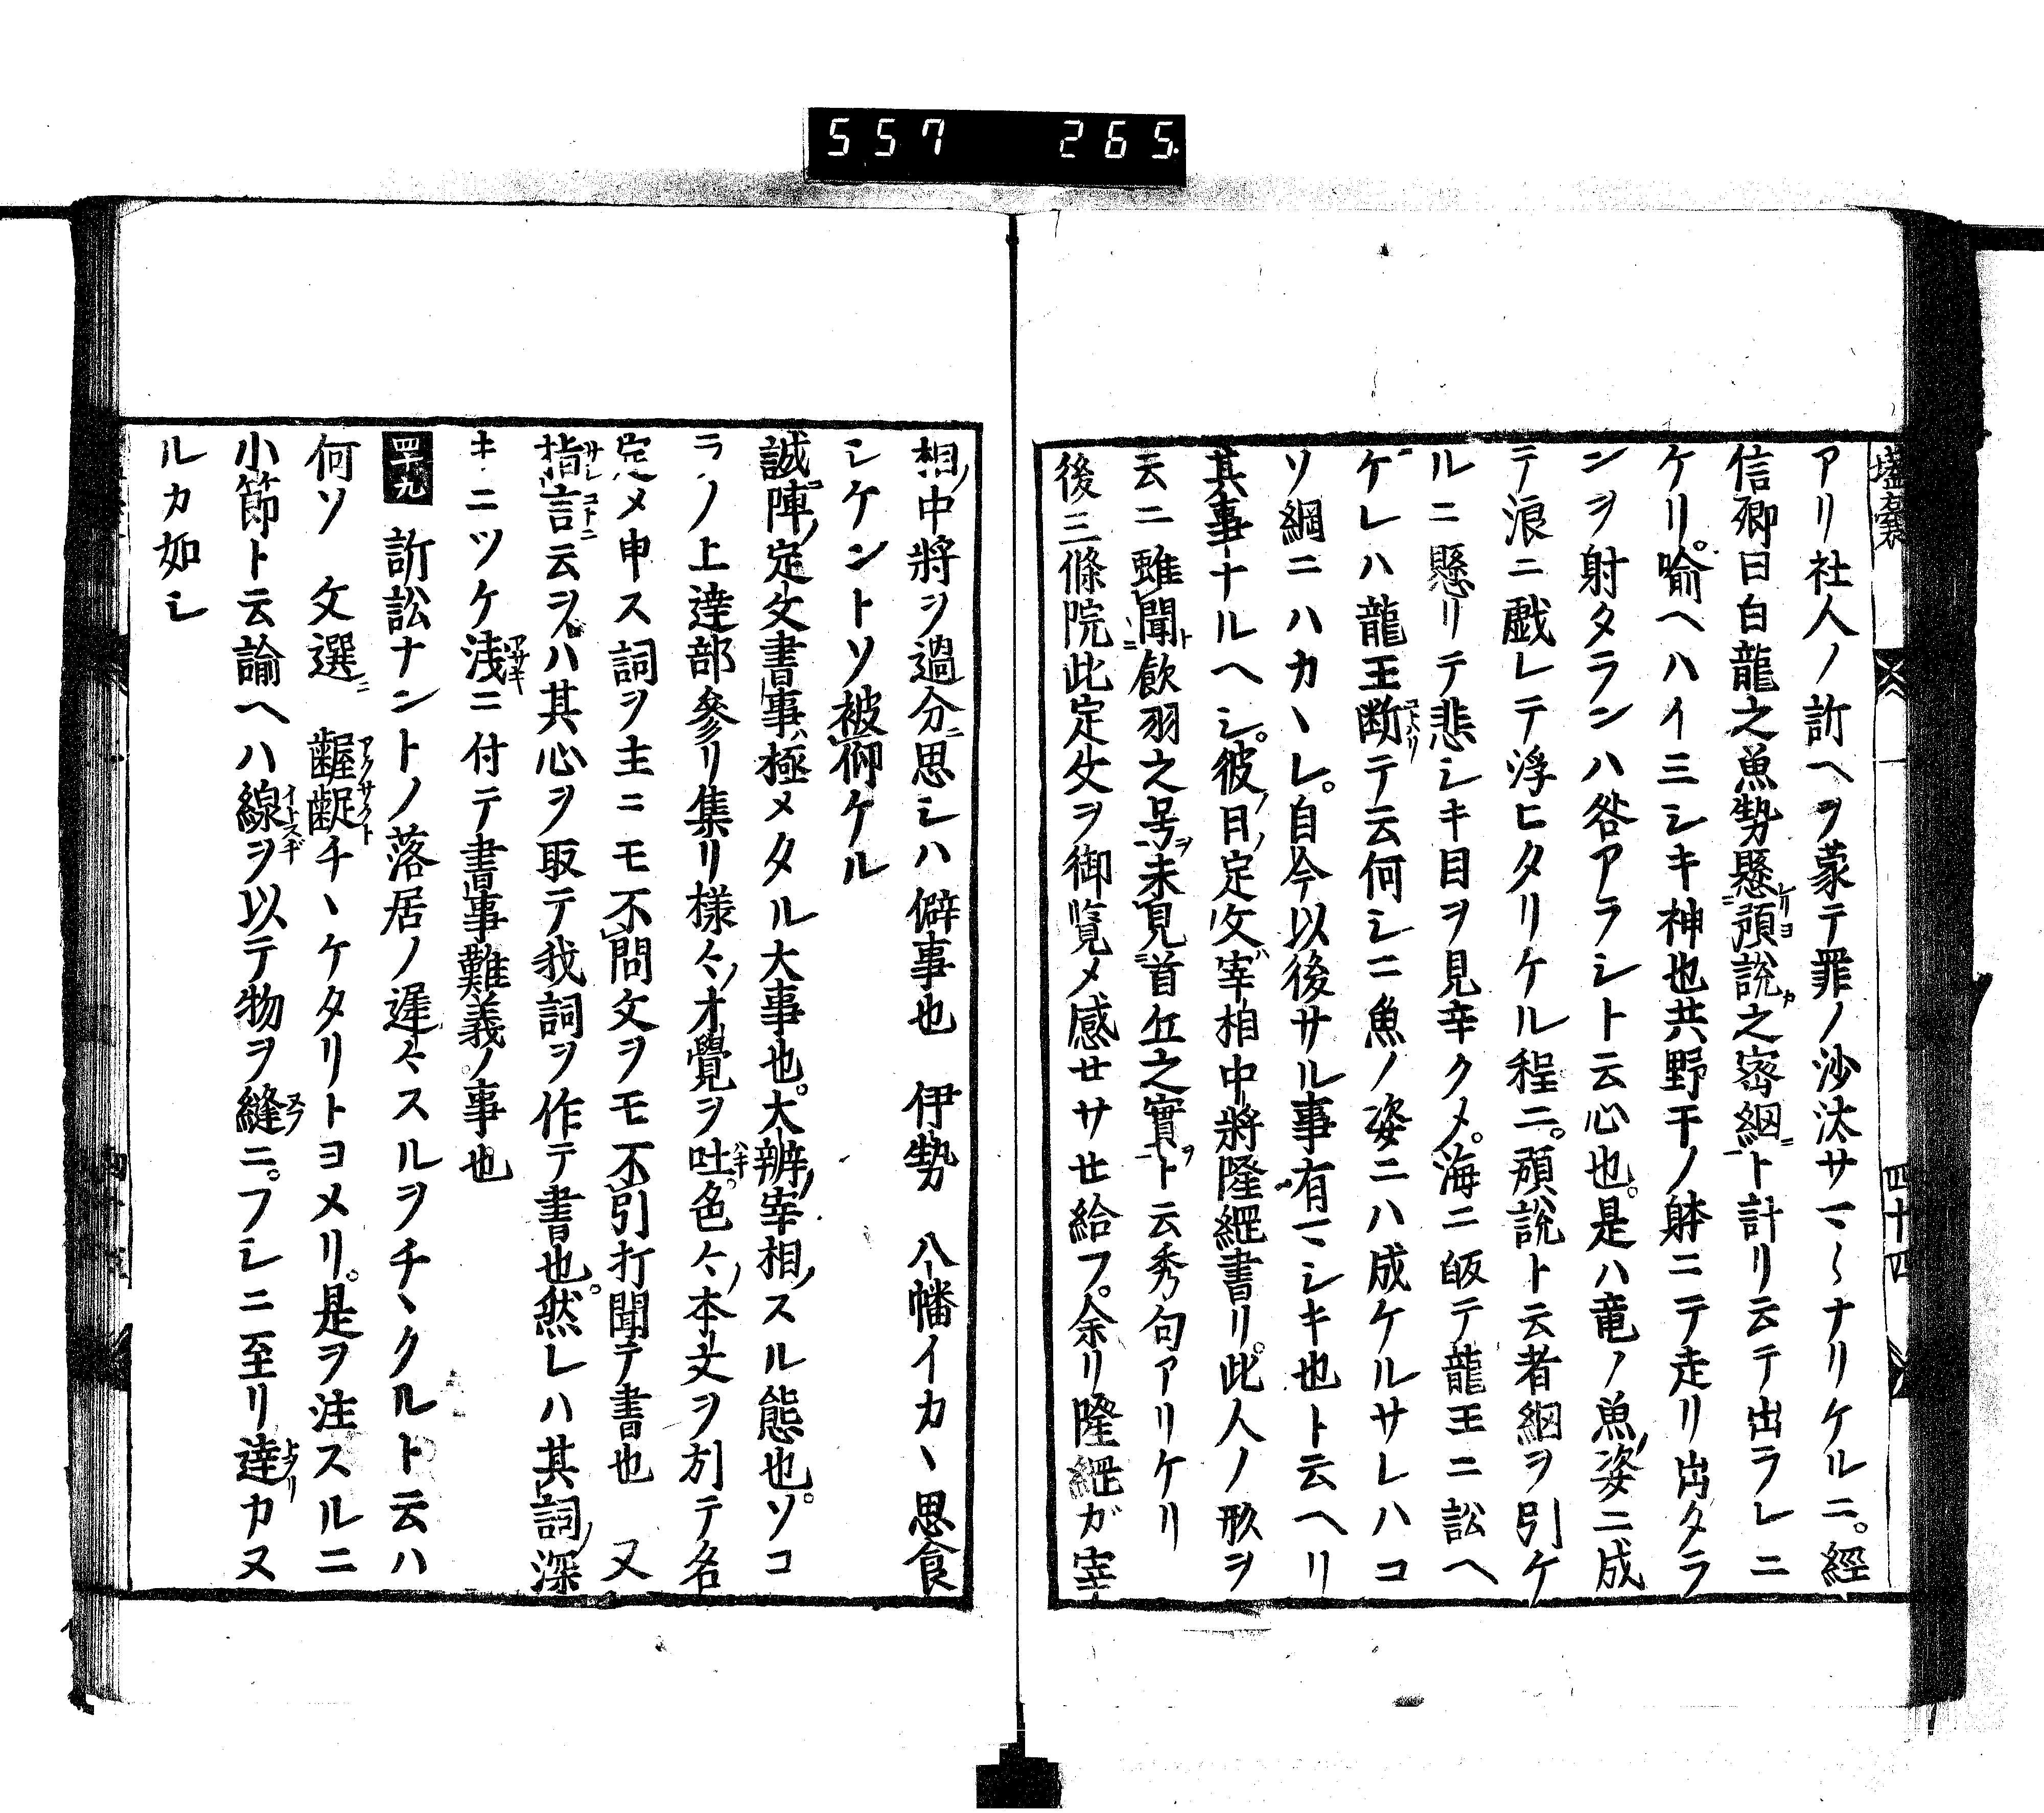 557 265
壒囊 一 四十四
アリ社人ノ訴ヘヲ蒙テ罪ノ沙汰サマ〱ナリケルニ。經
信卿曰白龍之魚勢懸預諾之密網ト計リ云テ出ラレニ
ケリ。喩ヘハイミシキ神也共野干ノ躰ニテ走リ出タラ
ンヲ射タランハ咎アラシト云心也。是ハ竜ノ魚姿ニ成
テ浪ニ戯レテ浮ヒタリケル程ニ。預諾ト云者網ヲ引ケ
ルニ懸リテ悲シキ目ヲ見辛クメ。海ニ皈テ龍王ニ訟ヘ
ケレハ龍王断テ云何シニ魚ノ姿ニハ成ケルサレハコ
ソ綱ニハカヽレ。自今以後サル事有マシキ也ト云ヘリ
其事ナルヘシ。彼日定文宰相中將隆經書リ。此人ノ形ヲ
云ニ雖聞飲羽之号未見首丘之實ト云秀句アリケリ
後三條院此定文ヲ御覧メ感セサせ給フ。余リ隆經ガ宰
相中將ヲ過分思シハ僻事也 伊勢 八幡イカヽ思食
シケントソ被仰ケル
誠陣定文書事極メタル大事也。大辨宰相スル態也。ソコ
ラノ上達部參リ集リ樣々才覺ヲ吐。色々本文ヲ刋テ名
定メ申ス詞ヲ主ニモ不問文ヲモ不引打聞テ書也 又
指言云ヲハ其心ヲ取テ我詞ヲ作テ書也。然レハ其詞深
キニツケ浅ニ付テ書事難義ノ事也
四十九 訴訟ナントノ落居ノ遲々スルヲチヽクルト云ハ
何ソ 文選 齷齪チヽケタリトヨメリ。是ヲ注スルニ
小節ト云諭ヘハ線ヲ以テ物ヲ縫ニ。フシニ至リ達カヌ
ルカ如シ